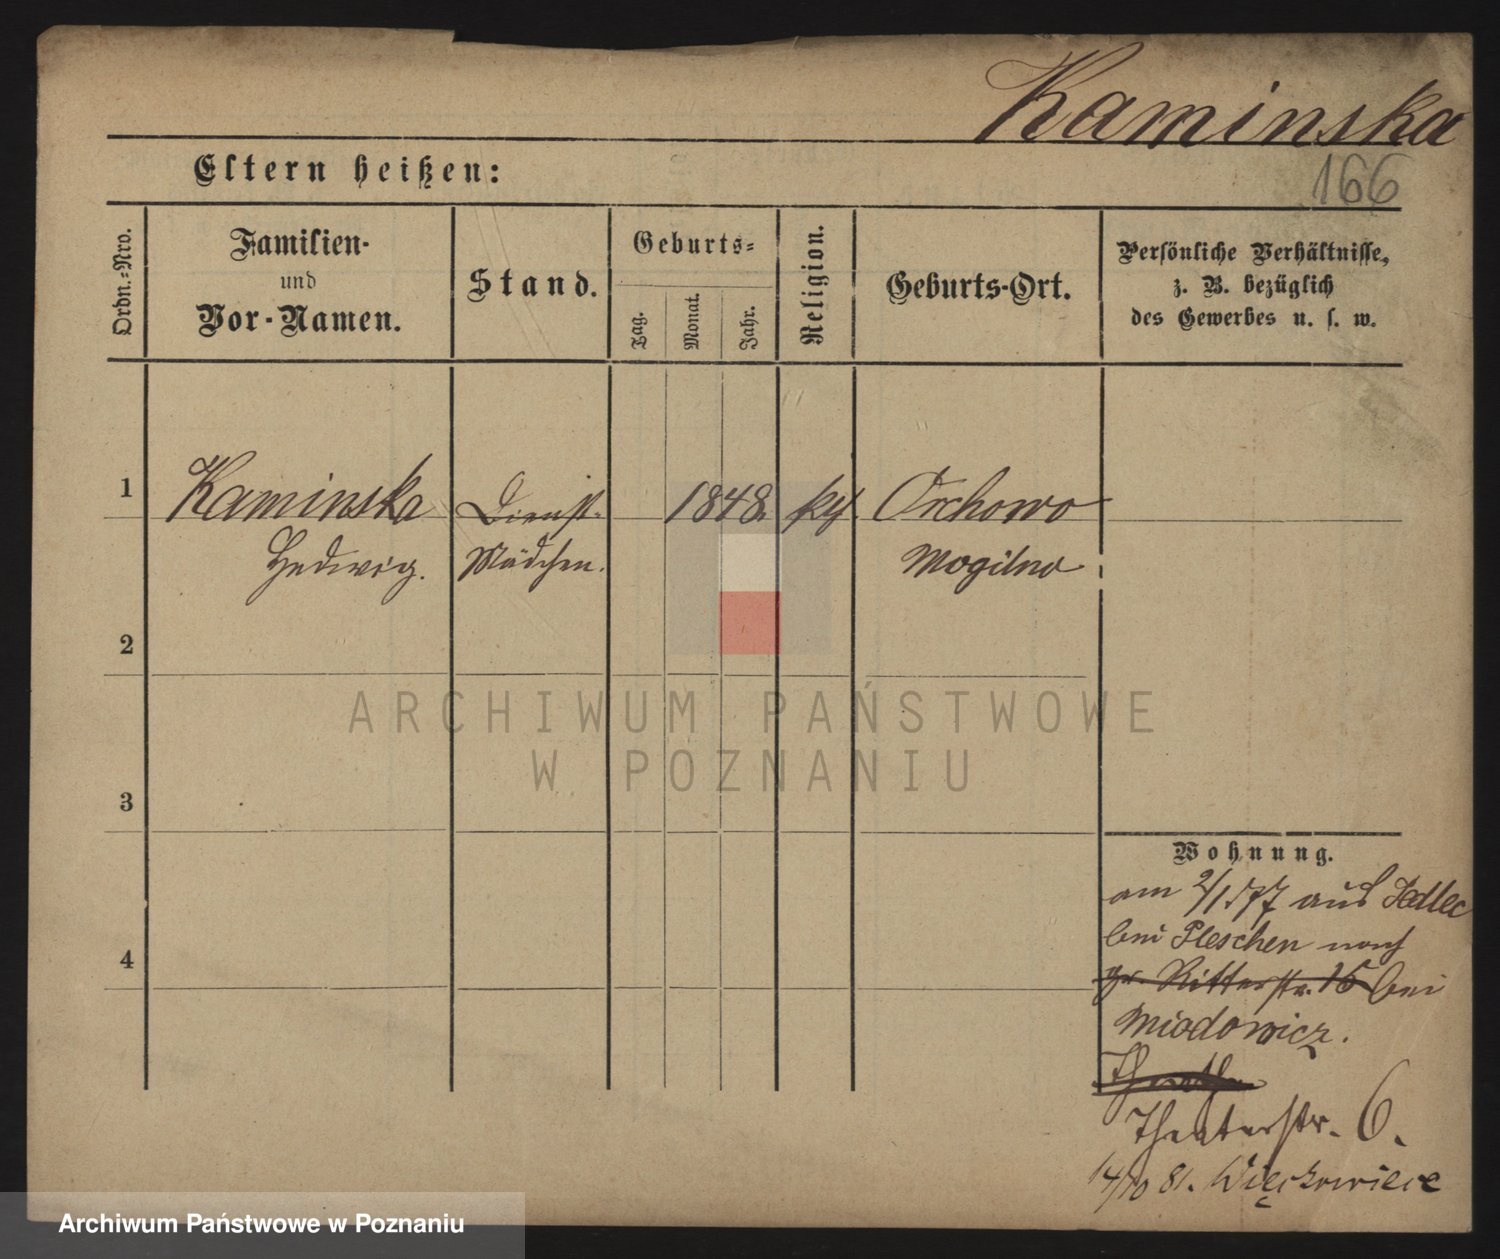 Kaminska
166
Eltern heißen:
Ordn.-Nro.
Familien-
und
Vor-Namen.
Stand.
Geburts-
Tag.
Monat.
Jahr.
Religion.
Geburts-Ort.
Persönliche Verhältnisse,
z. B. bezüglich
des Gewerbes u. s. w.
1
Kaminska
Hedwig.
Dienst-
Mädchen.
1848.
kth
Orchowo
Mogilno
2
3
4
Wohnung.
am 2/1 77 aus Jedlec
bei Pleschen nach
gr. Ritterstr. 15 bei
Miodowicz.
Theaterstr. 6.
14/10 81. Więckowice
ARCHIWUM PAŃSTWOWE
W POZNANIU
Archiwum Państwowe w Poznaniu